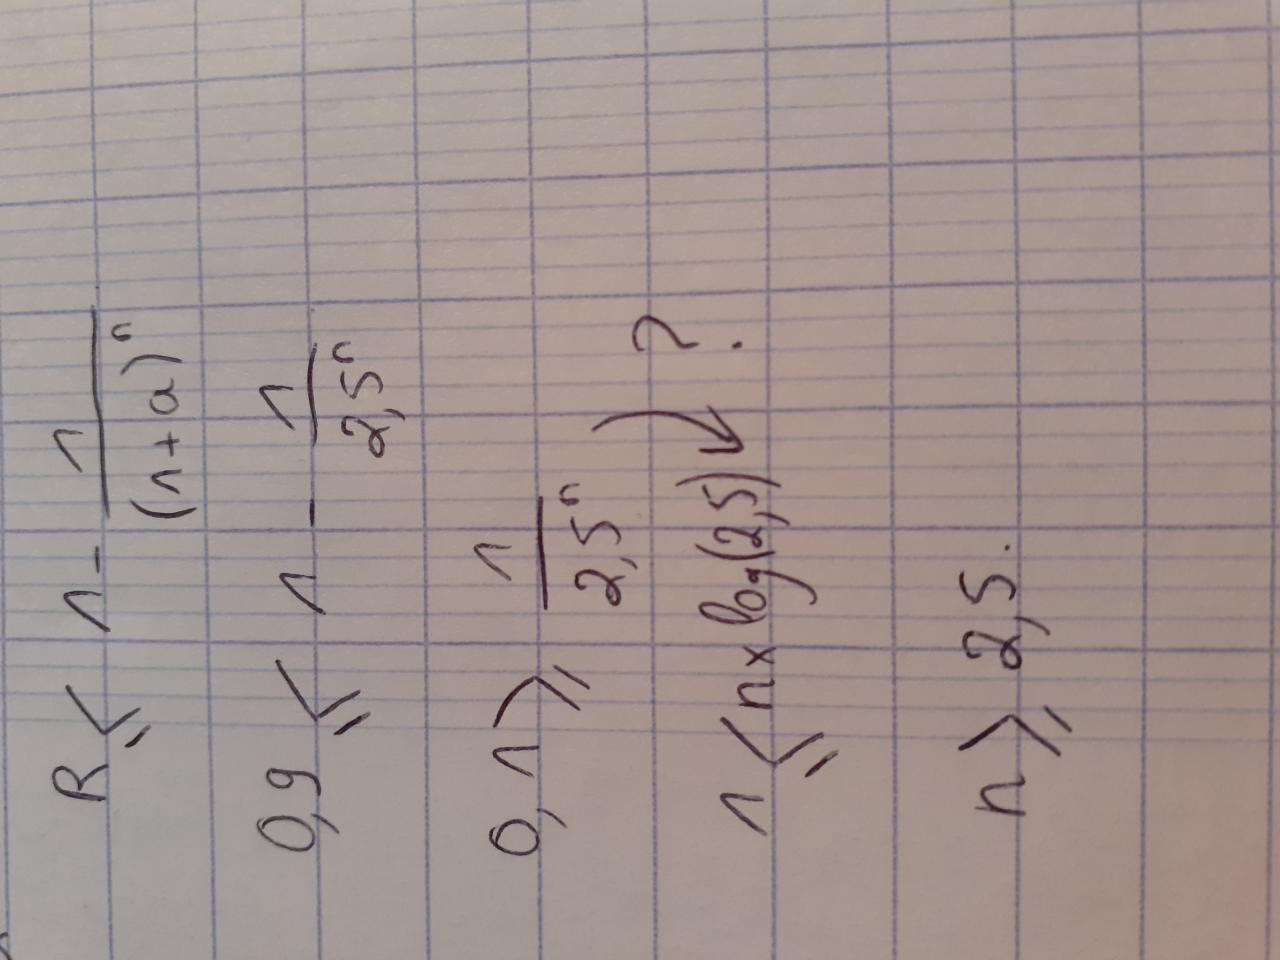 R ≤ 1 - 1/(1+a)^n
0,9 ≤ 1 - 1/2,5^n
0,1 ≥ 1/2,5^n
?
1 ≤ n × log(2,5)
n ≥ 2,5.